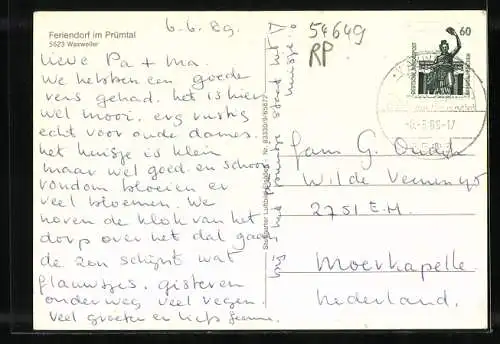 Feriendorf im Prümtal
5523 Waxweiler
6-6.89.
Lieve Pa + ma.
We hebben een goede
reis gehad. het is hier
wel mooi. erg rustig
echt voor oude dames.
het huisje is klein
maar wel goed. en schoon
rondom bloeien er
veel bloemen. We
horen de klok van het
dorp over het dal gaan
de zon schijnt wat
flauwtjes. gisteren
onderweg veel regen.
veel groeten en liefs
bij het puntje staat het
huisje.
54649
RP
60
-6.-6.89-17
fam G.
Wilde
2751 E.H.
Moerkapelle
Nederland.